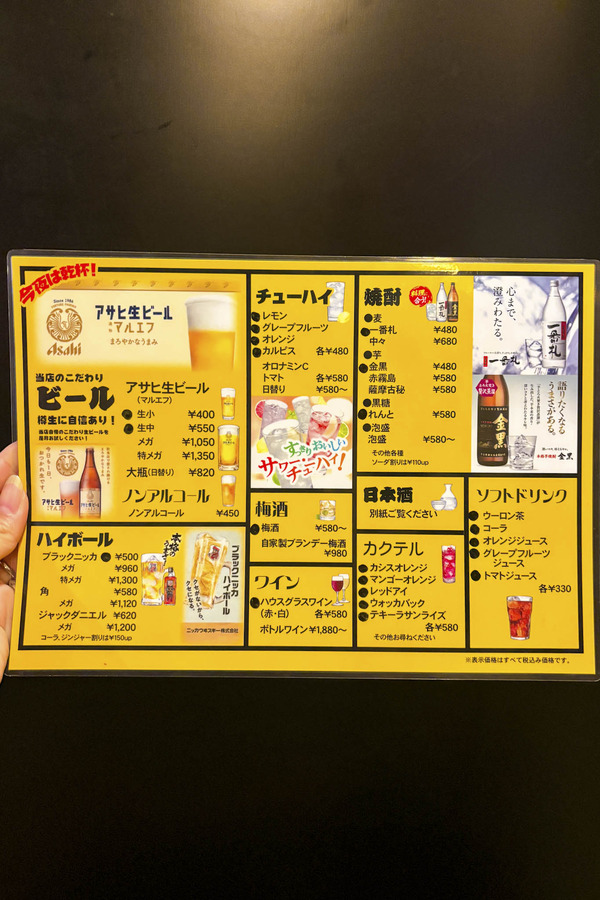 今夜は乾杯!
Since 1986
Asahi
アサヒ生ビール
通称マルエフ
まろやかなうまみ
当店のこだわり
ビール
樽生に自信あり!
当店自慢のこだわり生ビールを
是非お試しください!
今日も一日、
おつかれ生です。
アサヒ生ビール
マルエフ
アサヒ生ビール
(マルエフ)
生小 ¥400
生中 ¥550
メガ ¥1,050
特メガ ¥1,350
大瓶(日替り) ¥820
ノンアルコール
ノンアルコール ¥450
ハイボール
ブラックニッカ ¥500
メガ ¥960
特メガ ¥1,300
角 ¥580
メガ ¥1,120
ジャックダニエル ¥620
メガ ¥1,200
コーラ、ジンジャー割りは¥150up
本格のうまさ!
ブラックニッカ
ハイボール
クセがないから、
クセになる。
ニッカウヰスキー株式会社
チューハイ
レモン
グレープフルーツ
オレンジ
カルピス 各¥480
オロナミンC
トマト 各¥580
日替り ¥580〜
すっきりおいしい
サワー・
チューハイ!
梅酒
梅酒 ¥580〜
自家製ブランデー梅酒
¥980
ワイン
ハウスグラスワイン
(赤・白) 各¥580
ボトルワイン ¥1,880〜
焼酎
料理に合う!
麦
一番札 ¥480
中々 ¥680
芋
金黒 ¥480
赤霧島 ¥580
薩摩古秘 ¥580
黒糖
れんと ¥580
泡盛
泡盛 ¥580〜
その他各種
ソーダ割りは¥110up
日本酒
別紙ご覧ください
カクテル
カシスオレンジ
マンゴーオレンジ
レッドアイ
ウォッカバック
テキーラサンライズ
各¥580
その他お尋ねください
心まで、
澄みわたる。
一番札
一番札
語りたくなる
うまさがある。
金黒
本格芋焼酎 金黒
ソフトドリンク
ウーロン茶
コーラ
オレンジジュース
グレープフルーツ
ジュース
トマトジュース
各¥330
※表示価格はすべて税込み価格です。